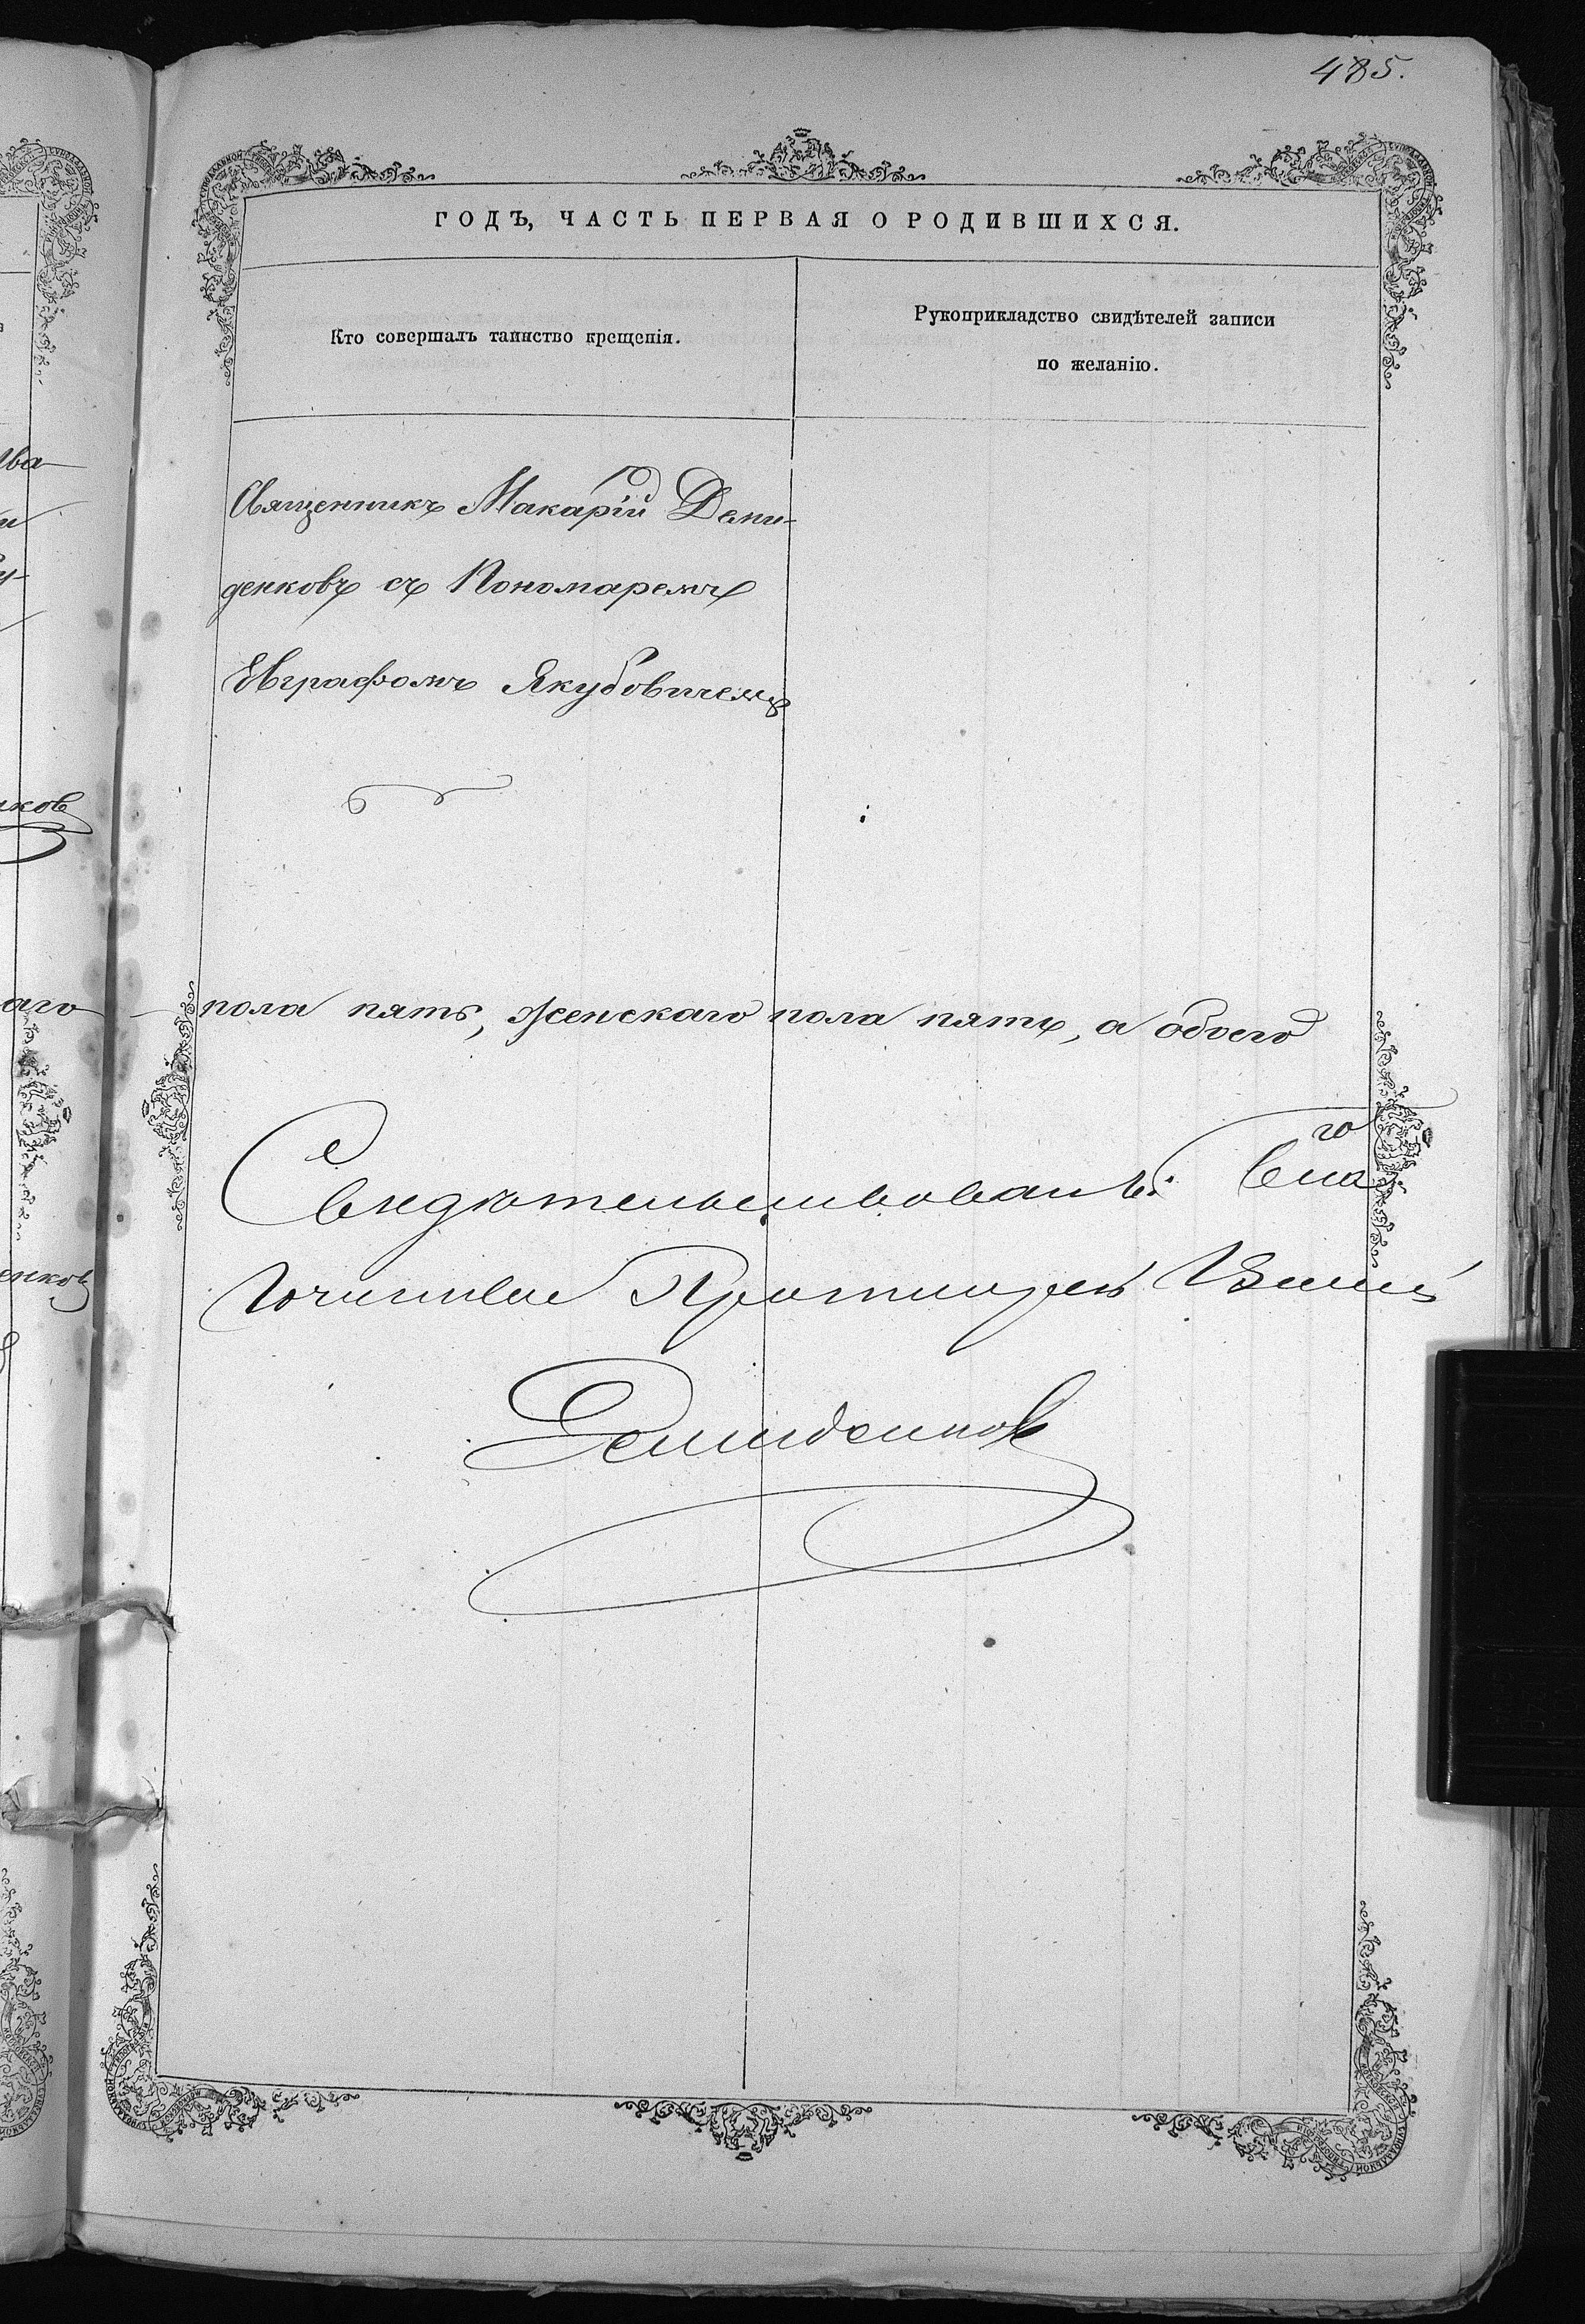 485.
ГОДЪ, ЧАСТЬ ПЕРВАЯ О РОДИВШИХСЯ.
Кто совершалъ таинство крещенія.
Рукоприкладство свидѣтелей записи
по желанію.
Священникъ Макарій Деми-
денковъ съ Пономаремъ
Евграфомъ Якубовичемъ
аго пола пять, женскаго пола пять, а обоего
Свидѣтельствовалъ: Бла
го
гочинный Протоіерей
Демиденков